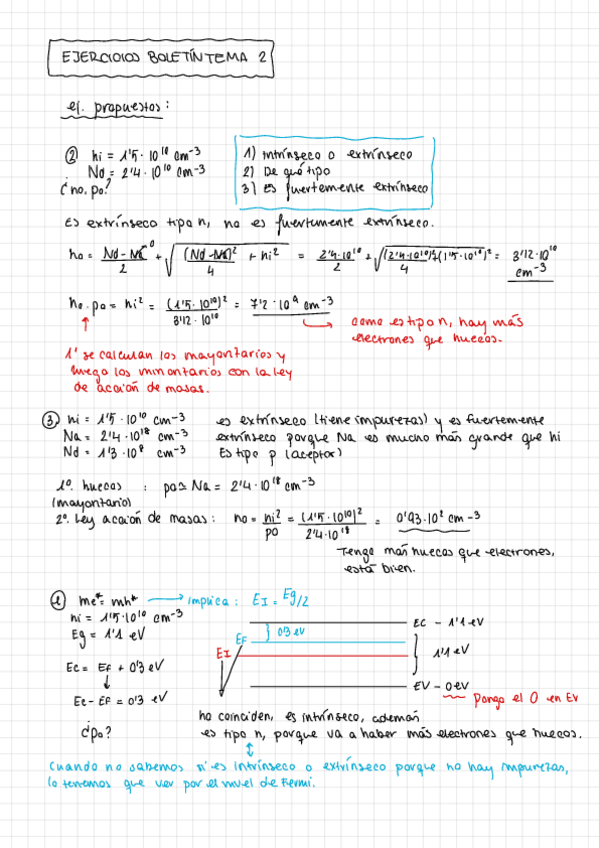 EJERCICIOS BOLETÍN TEMA 2
ej. propuestos:
② ni = 1'5 · 10¹⁰ cm⁻³
Nd = 2'4 · 10¹⁰ cm⁻³
¿no, po?
1) Intrínseco o extrínseco
2) De qué tipo
3) Es fuertemente extrínseco
Es extrínseco tipo n, no es fuertemente extrínseco.
no = Nd - Na⁰/2 + √((Nd - Na)²/4 + ni²) = 2'4·10¹⁰/2 + √((2'4·10¹⁰)²/4 + (1'5·10¹⁰)² = 3'12·10¹⁰ cm⁻³
no · po = ni² = (1'5 · 10¹⁰)²/3'12 · 10¹⁰ = 7'2 · 10⁹ cm⁻³
como es tipo n, hay más
electrones que huecos.
1º se calculan los mayoritarios y
luego los minoritarios con la ley
de acción de masas.
③ ni = 1'5 · 10¹⁰ cm⁻³ es extrínseco (tiene impurezas) y es fuertemente
Na = 2'4 · 10¹⁸ cm⁻³ extrínseco porque Na es mucho más grande que ni
Nd = 1'3 · 10⁸ cm⁻³ Es tipo p (aceptor)
1º. huecos : po ≈ Na = 2'4 · 10¹⁸ cm⁻³
(mayoritario)
2º. Ley acción de masas: no = ni²/po = (1'5 · 10¹⁰)²/2'4 · 10¹⁸ = 0'93 · 10² cm⁻³
Tengo más huecos que electrones,
está bien.
me* = mh* → implica: EI = Eg/2
ni = 1'5 · 10¹⁰ cm⁻³
Eg = 1'1 eV
EC - 1'1 eV
EF
0'3 eV
EI
1'1 eV
Ec = EF + 0'3 eV
EV - 0 eV
Pongo el 0 en EV
Ec - EF = 0'3 eV
no coinciden, es intrínseco, además
¿po? es tipo n, porque va a haber más electrones que huecos.
Cuando no sabemos si es intrínseco o extrínseco porque no hay impurezas,
lo tenemos que ver por el nivel de Fermi.